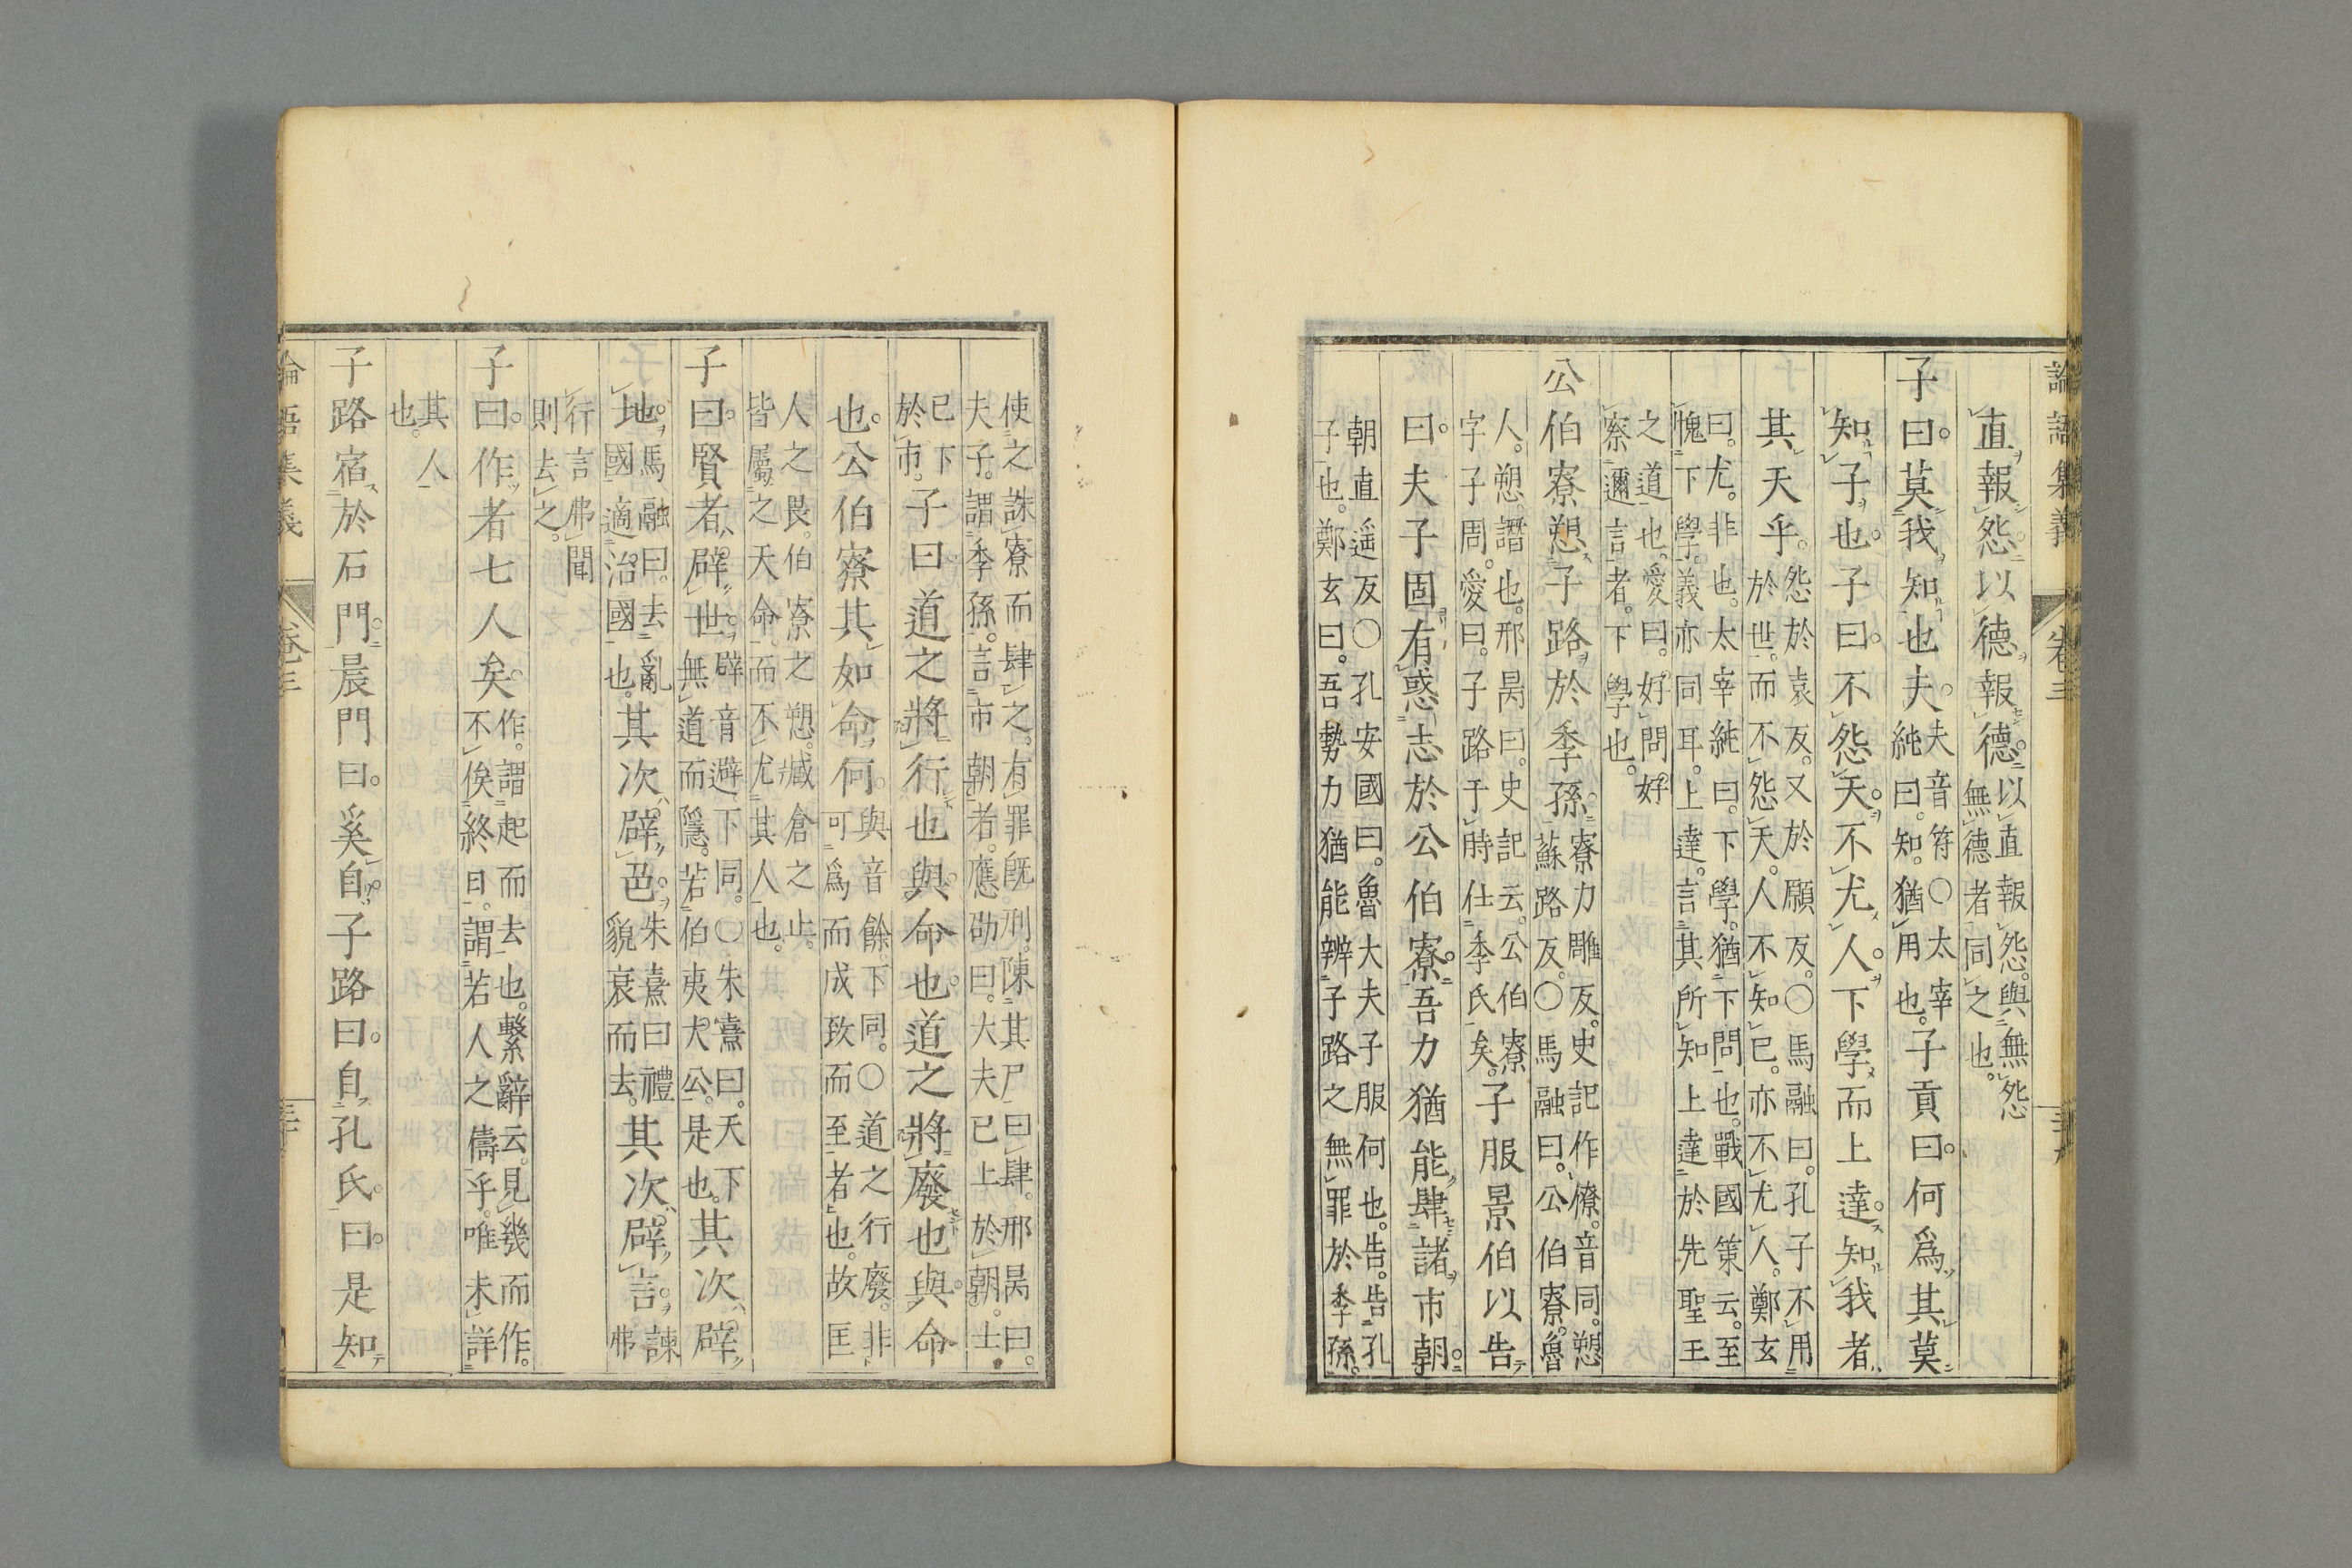 論語集義
卷三
直報怨以德報德。以直報怨。與無怨無德者同之也。
子曰。莫我知也夫。夫音符○太宰純曰。知。猶用也。子貢曰。何爲其莫
知子也。子曰。不怨天。不尤人。下學而上達。知我者
其天乎。怨於袁反。又於願反。○馬融曰。孔子不用於世。而不怨天。人不知已。亦不尤人。鄭玄
曰。尤。非也。太宰純曰。下學。猶下問也。戰國策云。至愧下學。義亦同耳。上達。言其所知上達於先聖王
之道也。愛曰。好問好察邇言者。下學也。
公伯寮愬子路於季孫。寮力雕反。史記作僚。音同。愬蘇路反。○馬融曰。公伯寮。魯
人。愬。譖也。邢昺曰。史記云。公伯寮字子周。愛曰。子路于時仕季氏矣。子服景伯以告
曰。夫子固有惑志於公伯寮。吾力猶能肆諸市朝。
朝直遥反○孔安國曰。魯大夫子服何也。告。告孔子也。鄭玄曰。吾勢力猶能辨子路之無罪於季孫。
使之誅寮而肆之。有罪既刑。陳其尸曰肆。邢昺曰。夫子。謂季孫。言市朝者。應劭曰。大夫已上於朝。士
已下於市。子曰。道之將行也與。命也。道之將廢也與。命
也。公伯寮其如命何。與音餘。下同。○道之行廢。非可爲而成。致而至者也。故匡
人之畏。伯寮之愬。臧倉之止。皆屬之天命。而不尤其人也。
子曰。賢者辟世。辟音避下同。○朱熹曰。天下無道而隱。若伯夷大公。是也。其次辟
地。馬融曰。去亂國。適治國也。其次辟色。朱熹曰禮貌衰而去。其次辟言。諫弗
行言弗聞則去之。
子曰。作者七人矣。作。謂起而去也。繫辭云。見幾而作。不俟終日。謂若人之儔乎。唯未詳
其人也。
子路宿於石門。晨門曰。奚自。子路曰。自孔氏。曰。是知
論語集義
卷三